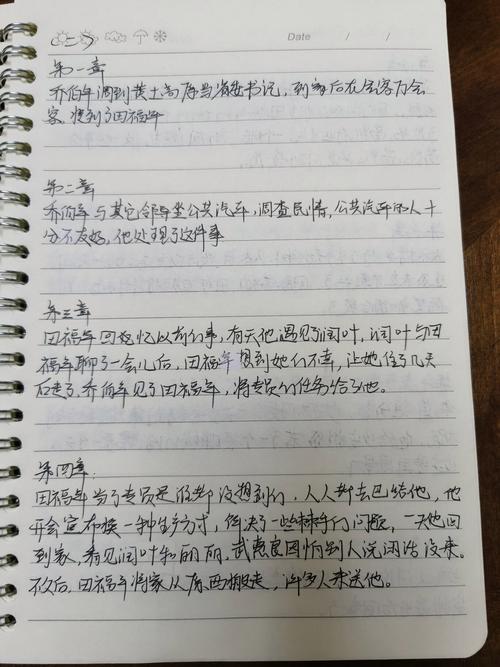 (二)
Date
第一章
乔伯年调到黄土高原当省委书记，到家后在会客万会
客，想到了田福军
第二章
乔伯年与其它领导坐公共汽车，调查民情，公共汽车的人十
分不友好，他处理了这件事
第三章
田福军回忆以前的事，有天他遇见了润叶，润叶与田
福军聊了一会儿后，田福军想到她们不幸，让她住了几天
后走了。乔伯年见了田福军，将专员的任务给了他。
第四章
田福军当了专员是谁都没想到的，人人都去巴结他，他
开会宣布换一种生产方式，解决了一些棘手的问题，一天他回
到家，看见润叶和丽丽，武惠良因怕别人说闲话没来。
不久后，田福军将家从原西搬走，许多人来送他。